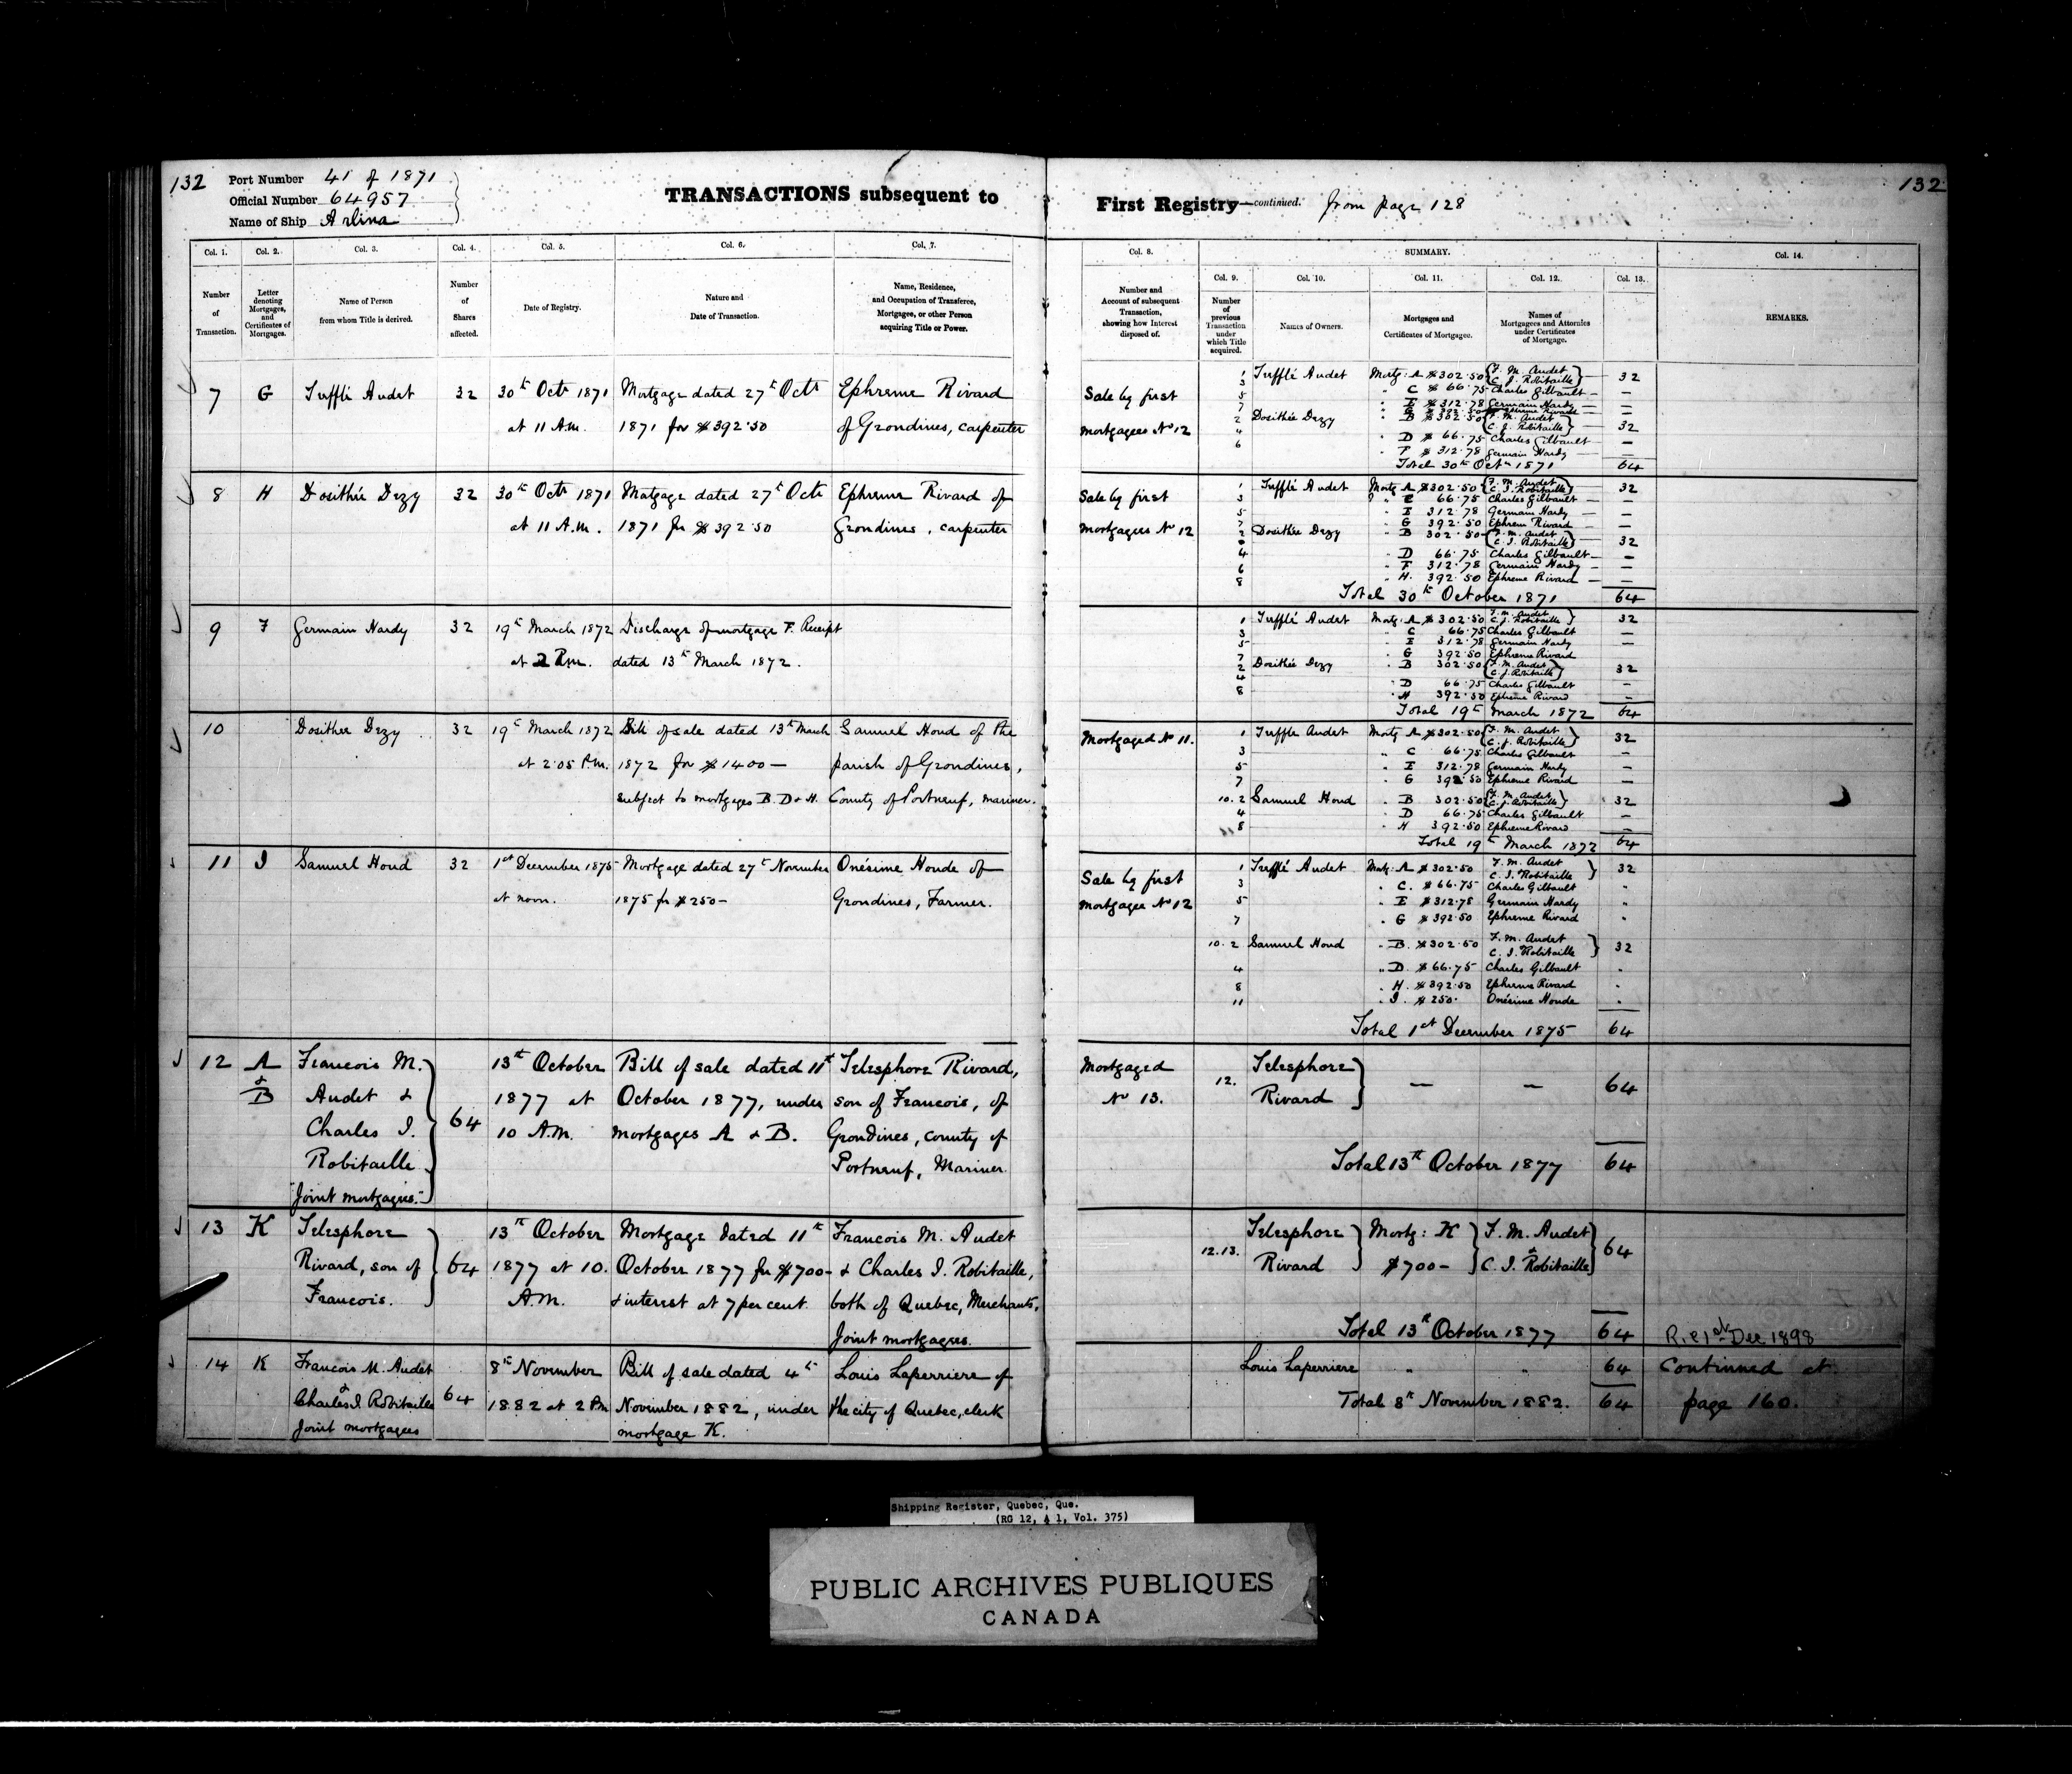 132
Port Number 41 of 1871
Official Number 64957
Name of Ship Arlina
TRANSACTIONS subsequent to
First Registry—continued. from page 128
132
Col. 1.
Number of Transaction.
Col. 2.
Letter denoting Mortgages, and Certificates of Mortgages.
Col. 3.
Name of Person from whom Title is derived.
Col. 4.
Number of Shares affected.
Col. 5.
Date of Registry.
Col. 6.
Nature and Date of Transaction.
Col. 7.
Name, Residence, and Occupation of Transferee, Mortgagee, or other Person acquiring Title or Power.
Col. 8.
Number and Account of subsequent Transaction, showing how Interest disposed of.
SUMMARY.
Col. 9.
Number of previous Transaction under which Title acquired.
Col. 10.
Names of Owners.
Col. 11.
Mortgages and Certificates of Mortgagee.
Col. 12.
Names of Mortgagees and Attornies under Certificates of Mortgage.
Col. 13.
Col. 14.
REMARKS.
7 G Tuffli Audet 32 30th Octr 1871 Mortgage dated 27th Octr Ephreme Rivard
at 11 A.M. 1871 for $392.50 of Grondines, carpenter
Sale by first
mortgagees No 12
1 Tufflé Audet Mortg. A $302.50 F. M. Audet 32
C. J. Robitaille
3 " C $66.75 Charles Gilbault —
5 " E $312.78 Germain Hardy —
7 " G Ephreme Rivard —
2 Dosithée Dezy " B $302.50 F. M. Audet 32
C. J. Robitaille
4 " D $66.75 Charles Gilbault —
6 " F $312.78 Germain Hardy —
Total 30th Octr 1871 64
8 H Dosithée Dezy 32 30th Octr 1871 Mortgage dated 27th Octr Ephreme Rivard of
at 11 A.M. 1871 for $392.50 Grondines, carpenter
Sale by first
mortgagees No 12
1 Tufflé Audet Mortg A $302.50 F. M. Audet 32
C. J. Robitaille
3 66.75 Charles Gilbault —
5 " E 312.78 Germain Hardy —
7 " G 392.50 Ephrem Rivard —
2 Dosithée Dezy " B 302.50 F. M. Audet 32
C. J. Robitaille
4 " D 66.75 Charles Gilbault —
6 " F 312.78 Germain Hardy —
8 " H. 392.50 Ephreme Rivard —
Total 30th October 1871 64
9 F Germain Hardy 32 19th March 1872 Discharge of mortgage F. Receipt
at 2 P.m. dated 13th March 1872.
1 Tufflé Audet Mortg. A $302.50 F. M. Audet 32
C. J. Robitaille
3 " C 66.75 Charles Gilbault —
5 " E 312.78 Germain Hardy —
7 " G 392.50 Ephreme Rivard
2 Dosithée Dezy " B 302.50 F. M. Audet 32
C. J. Robitaille
4 " D 66.75 Charles Gilbault —
8 " H 392.50 Ephreme Rivard —
Total 19th March 1872 64
10 Dosithee Dezy 32 19th March 1872 Bill of sale dated 13th March Samuel Houd of the
at 2.05 P.M. 1872 for $1400— parish of Grondines,
subject to mortgages B. D & H. County of Portneuf, mariner.
Mortgaged No 11.
1 Tuffle Audet Mortg A $302.50 F. M. Audet 32
C. J. Robitaille
3 " C 66.75 Charles Gilbault —
5 " E 312.78 Germain Hardy —
7 " G 392.50 Ephreme Rivard —
10.2 Samuel Houd " B 302.50 F. M. Audet 32
C. J. Robitaille
4 " D 66.75 Charles Gilbault —
8 " H 392.50 Ephreme Rivard —
Total 19th March 1872 64
11 I Samuel Houd 32 1st December 1875 Mortgage dated 27th November Onésime Houde of
at noon. 1875 for $250— Grondines, Farmer.
Sale by first
mortgagee No 12
1 Tufflé Audet Mortg. A $302.50 F. M. Audet 32
C. J. Robitaille
3 " C. $66.75 Charles Gilbault "
5 " E $312.78 Germain Hardy "
7 " G $392.50 Ephreme Rivard "
10.2 Samuel Houd " B. $302.50 F. M. Audet 32
C. J. Robitaille
4 " D $66.75 Charles Gilbault "
8 " H. $392.50 Ephreme Rivard "
11 " I. $250. Onésime Houde "
Total 1st December 1875 64
12 A & B Francois M. Audet & Charles I. Robitaille "Joint mortgagees." 64
13th October 1877 at 10 A.M.
Bill of sale dated 11th October 1877, under mortgages A & B.
Telesphore Rivard, son of Francois, of Grondines, county of Portneuf, Mariner.
Mortgaged
No 13.
12. Telesphore Rivard — — 64
Total 13th October 1877 64
13 K Telesphore Rivard, son of Francois. 64
13th October 1877 at 10. A.M.
Mortgage dated 11th October 1877 for $700— & interest at 7 per cent.
Francois M. Audet & Charles I. Robitaille, both of Quebec, Merchants, Joint mortgagees.
12.13. Telesphore Rivard Mortg: K $700— F. M. Audet & C. I. Robitaille 64
Total 13th October 1877 64
14 K Francois M. Audet & Charles I. Robitaille Joint mortgagees 64
8th November 1882 at 2 PM
Bill of sale dated 4th November 1882, under mortgage K.
Louis Laperriere of the city of Quebec, clerk
Louis Laperriere " " 64
Total 8th November 1882. 64
1st Dec 1898
Continued at
page 160.
Shipping Register, Quebec, Que.
(RG 12, A 1, Vol. 375)
PUBLIC ARCHIVES PUBLIQUES
CANADA